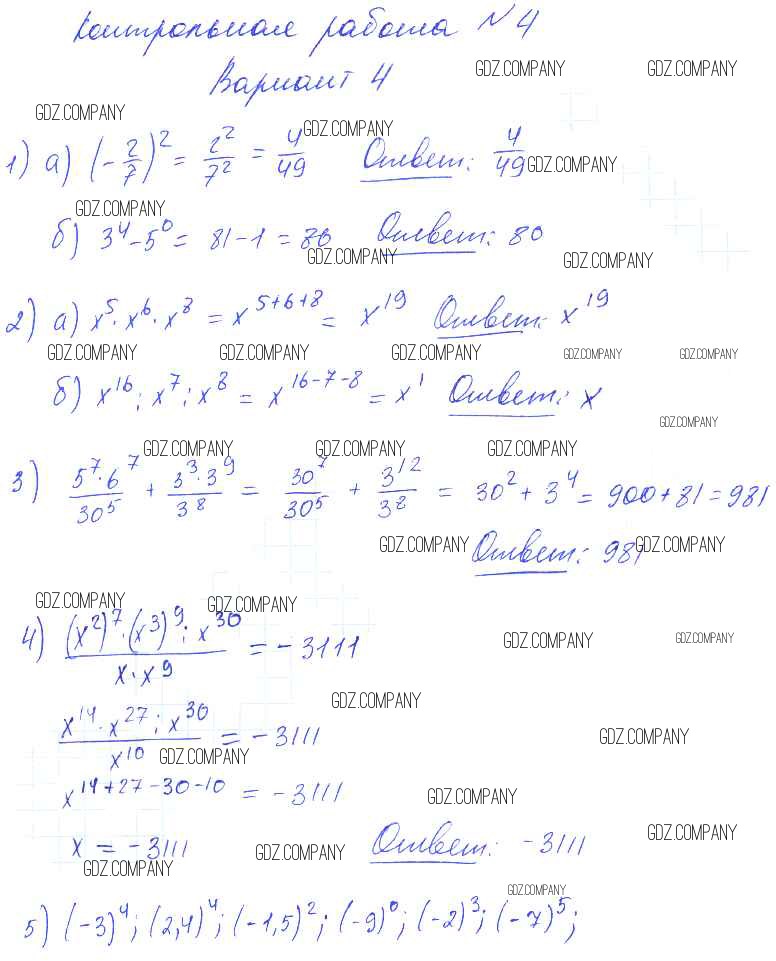 Контрольная работа №4
Вариант 4
GDZ.COMPANY GDZ.COMPANY
GDZ.COMPANY
GDZ.COMPANY
1) а) (-2/7)² = 2²/7² = 4/49 Ответ: 4/49
GDZ.COMPANY
GDZ.COMPANY
б) 3⁴-5⁰ = 81-1 = 80 Ответ: 80
GDZ.COMPANY GDZ.COMPANY
2) а) x⁵·x⁶·x⁸ = x⁵⁺⁶⁺⁸ = x¹⁹ Ответ: x¹⁹
GDZ.COMPANY GDZ.COMPANY GDZ.COMPANY GDZ.COMPANY GDZ.COMPANY
б) x¹⁶:x⁷:x⁸ = x¹⁶⁻⁷⁻⁸ = x¹ Ответ: x
GDZ.COMPANY
GDZ.COMPANY GDZ.COMPANY GDZ.COMPANY
3) 5⁷·6⁷/30⁵ + 3³·3⁹/3⁸ = 30⁷/30⁵ + 3¹²/3⁸ = 30² + 3⁴ = 900+81 = 981
GDZ.COMPANY Ответ: 981 GDZ.COMPANY
GDZ.COMPANY GDZ.COMPANY
4) (x²)⁷·(x³)⁹:x³⁰/x·x⁹ = -3111
GDZ.COMPANY GDZ.COMPANY
GDZ.COMPANY
x¹⁴·x²⁷:x³⁰/x¹⁰ = -3111
GDZ.COMPANY GDZ.COMPANY
x¹⁴⁺²⁷⁻³⁰⁻¹⁰ = -3111
GDZ.COMPANY
x = -3111 Ответ: -3111
GDZ.COMPANY GDZ.COMPANY GDZ.COMPANY
GDZ.COMPANY
5) (-3)⁴; (2,4)⁴; (-1,5)²; (-9)⁰; (-2)³; (-7)⁵;